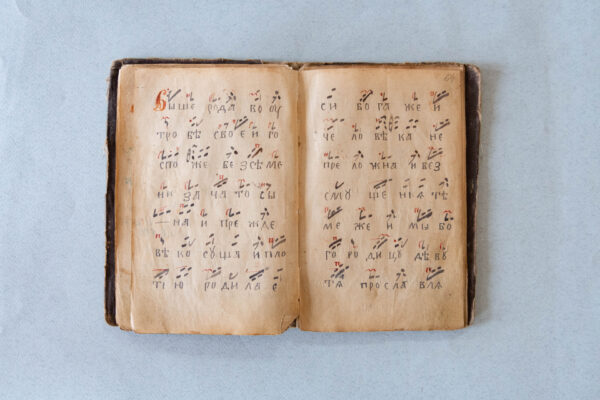 Выше рода во оу
тробѣ свое и го
споже безсѣме
ни зачатосы
на и прежде
вѣко сущїя и пло
тїю родила е
си бога же и
человѣка не
преложна и без
смущенꙗ тѣ
ме же и мы бо
городицу дѣву
тѧ прославлѧ